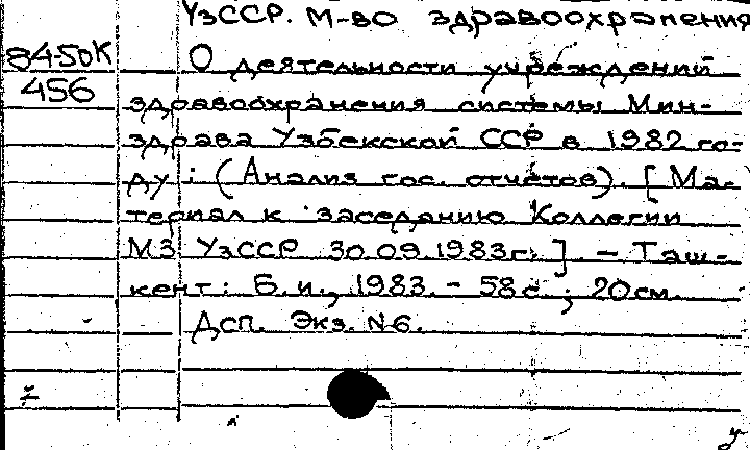 УзССР. М-во здравоохранения
84-50К
О деятельности учреждений
456
здравоохранения системы Мин-
здрава Узбекской ССР в 1982 го-
ду : (Анализ гос. отчетов). [Ма-
териал к заседанию Коллегии
МЗ УзССР 30.09.1983г.] – Таш-
кент: Б.и., 1983. – 58с.; 20см.
Дсп. Экз. №6.